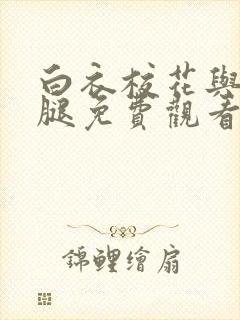 白衣校花與
腿免費觀看
錦鯉繪扇